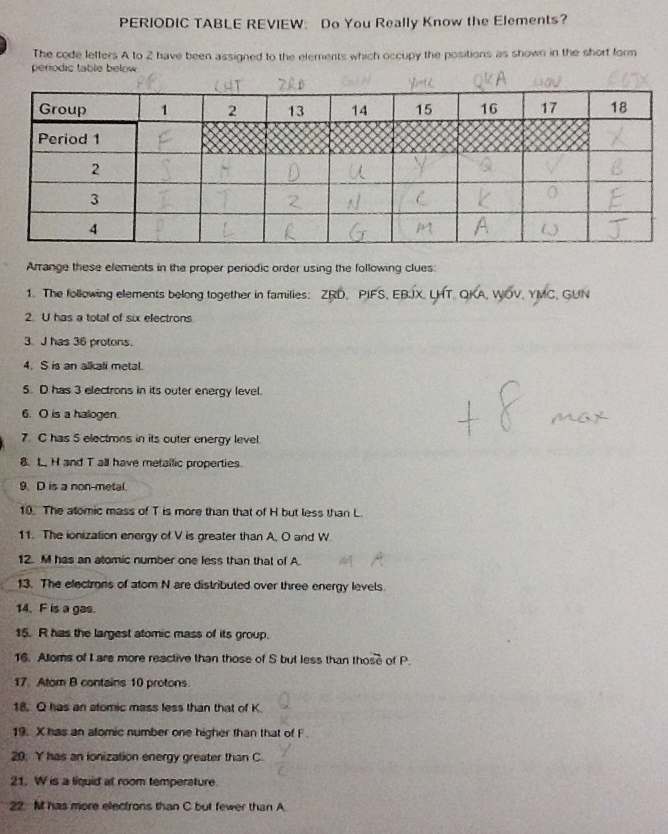 PERIODIC TABLE REVIEW: Do You Really Know the Elements?
The code letters A to Z have been assigned to the elements which occupy the positions as shown in the short form
periodic table below
LHT ZRD GUN YMC QKA WOV EBJX
Group 1 2 13 14 15 16 17 18
Period 1 F X
2 S H D U Y Q V B
3 I T Z N C K O E
4 P L R G M A W J
Arrange these elements in the proper periodic order using the following clues:
1. The following elements belong together in families: ZRD, PIFS, EBJX, LHT, QKA, WOV, YMC, GUN
2. U has a total of six electrons.
3. J has 36 protons.
4. S is an alkali metal.
5. D has 3 electrons in its outer energy level.
6. O is a halogen.
+8 max
7. C has 5 electrons in its outer energy level.
8. L, H and T all have metallic properties.
9. D is a non-metal.
10. The atomic mass of T is more than that of H but less than L.
11. The ionization energy of V is greater than A, O and W.
12. M has an atomic number one less than that of A. M A
13. The electrons of atom N are distributed over three energy levels.
14. F is a gas.
15. R has the largest atomic mass of its group.
16. Atoms of I are more reactive than those of S but less than those of P.
17. Atom B contains 10 protons.
18. Q has an atomic mass less than that of K. Q
K
19. X has an atomic number one higher than that of F.
20. Y has an ionization energy greater than C. Y
C
21. W is a liquid at room temperature.
22. M has more electrons than C but fewer than A.